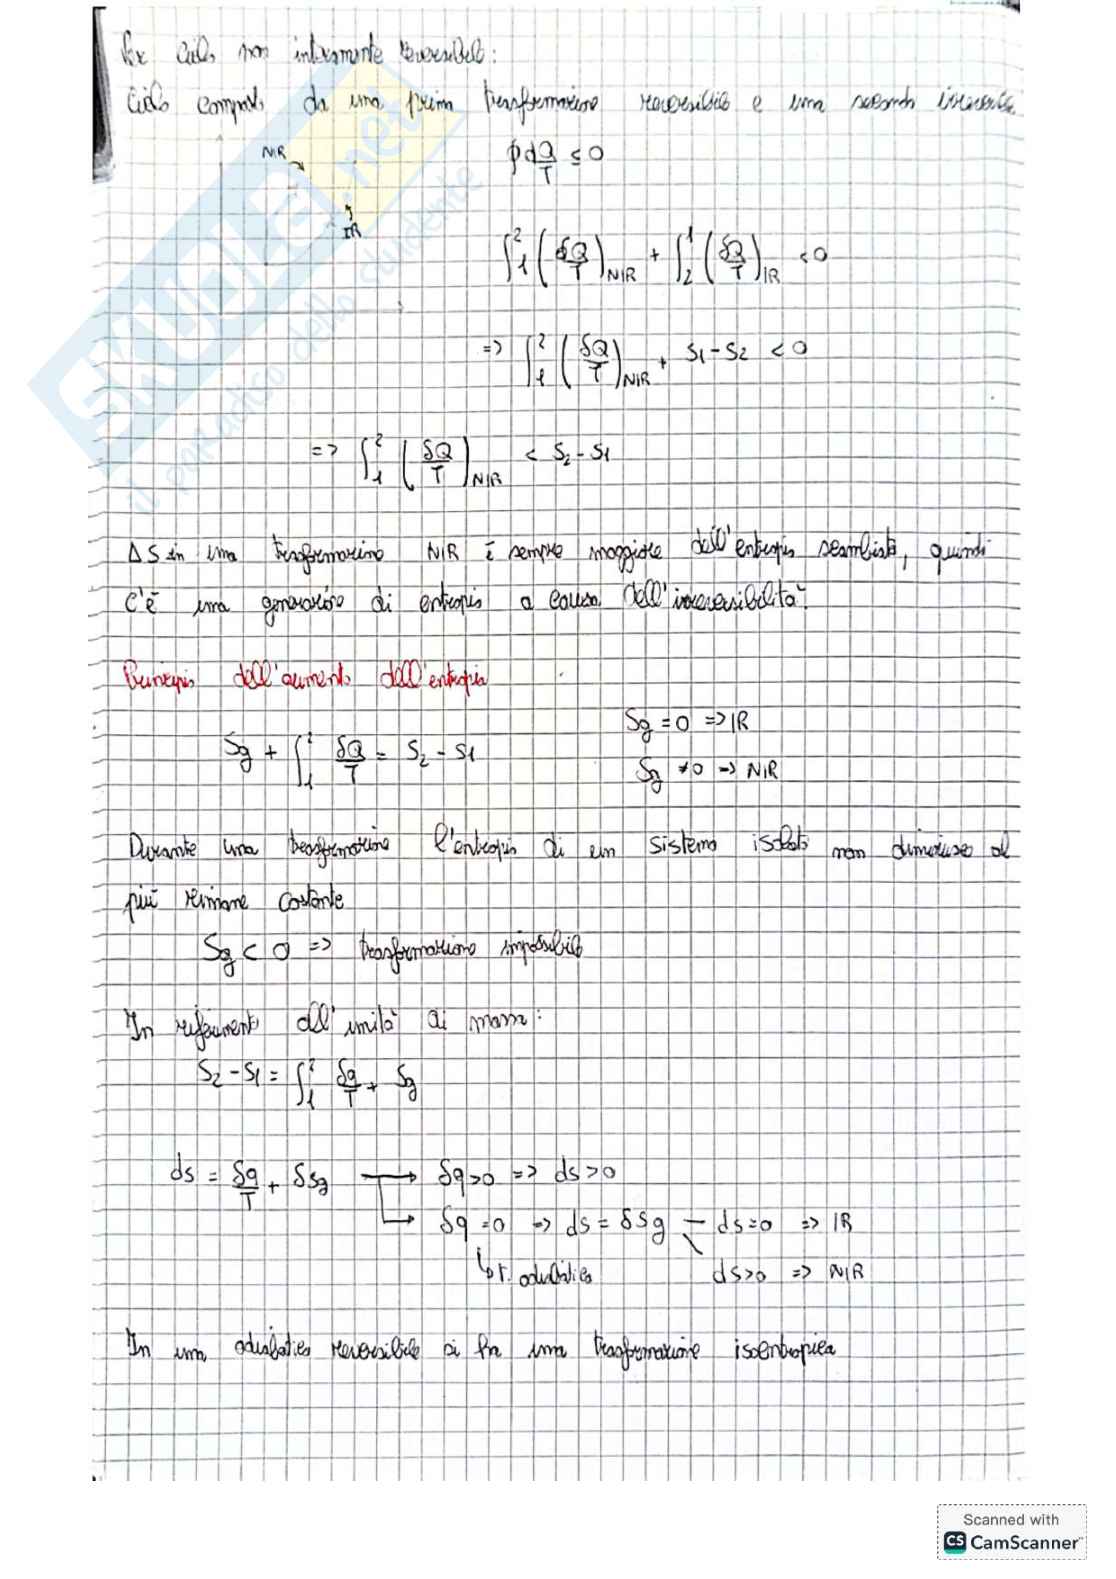 Ex Ciclo non interamente reversibile:
Ciclo composto da una prima trasformazione reversibile e una seconda irreversibile
NIR
∮ dQ/T ≤ 0
IR
∫₁² (δQ/T)NIR + ∫₂¹ (δQ/T)IR < 0
=> ∫₁² (δQ/T)NIR + S1 - S2 < 0
=> ∫₁² (δQ/T)NIR < S2 - S1
ΔS in una trasformazione NIR è sempre maggiore dell'entropia scambiata, quindi
c'è una generazione di entropia a causa dell'irreversibilità.
Principio dell'aumento dell'entropia
Sg = 0 => IR
Sg + ∫₁² δQ/T = S2 - S1
Sg ≠ 0 => NIR
Durante una trasformazione l'entropia di un sistema isolato non diminuisce al
più rimane costante
Sg < 0 => trasformazione impossibile
In riferimento all'unità di massa:
S2 - S1 = ∫₁² δq/T + Sg
ds = δq/T + δsg → δq>0 => ds>0
→ δq = 0 => ds = δsg — ds=0 => IR
↳ t. adiabatica ds>0 => NIR
In una adiabatica reversibile si ha una trasformazione isoentropica
SKUOLA.net
il paradiso dello studente
Scanned with
CS CamScanner